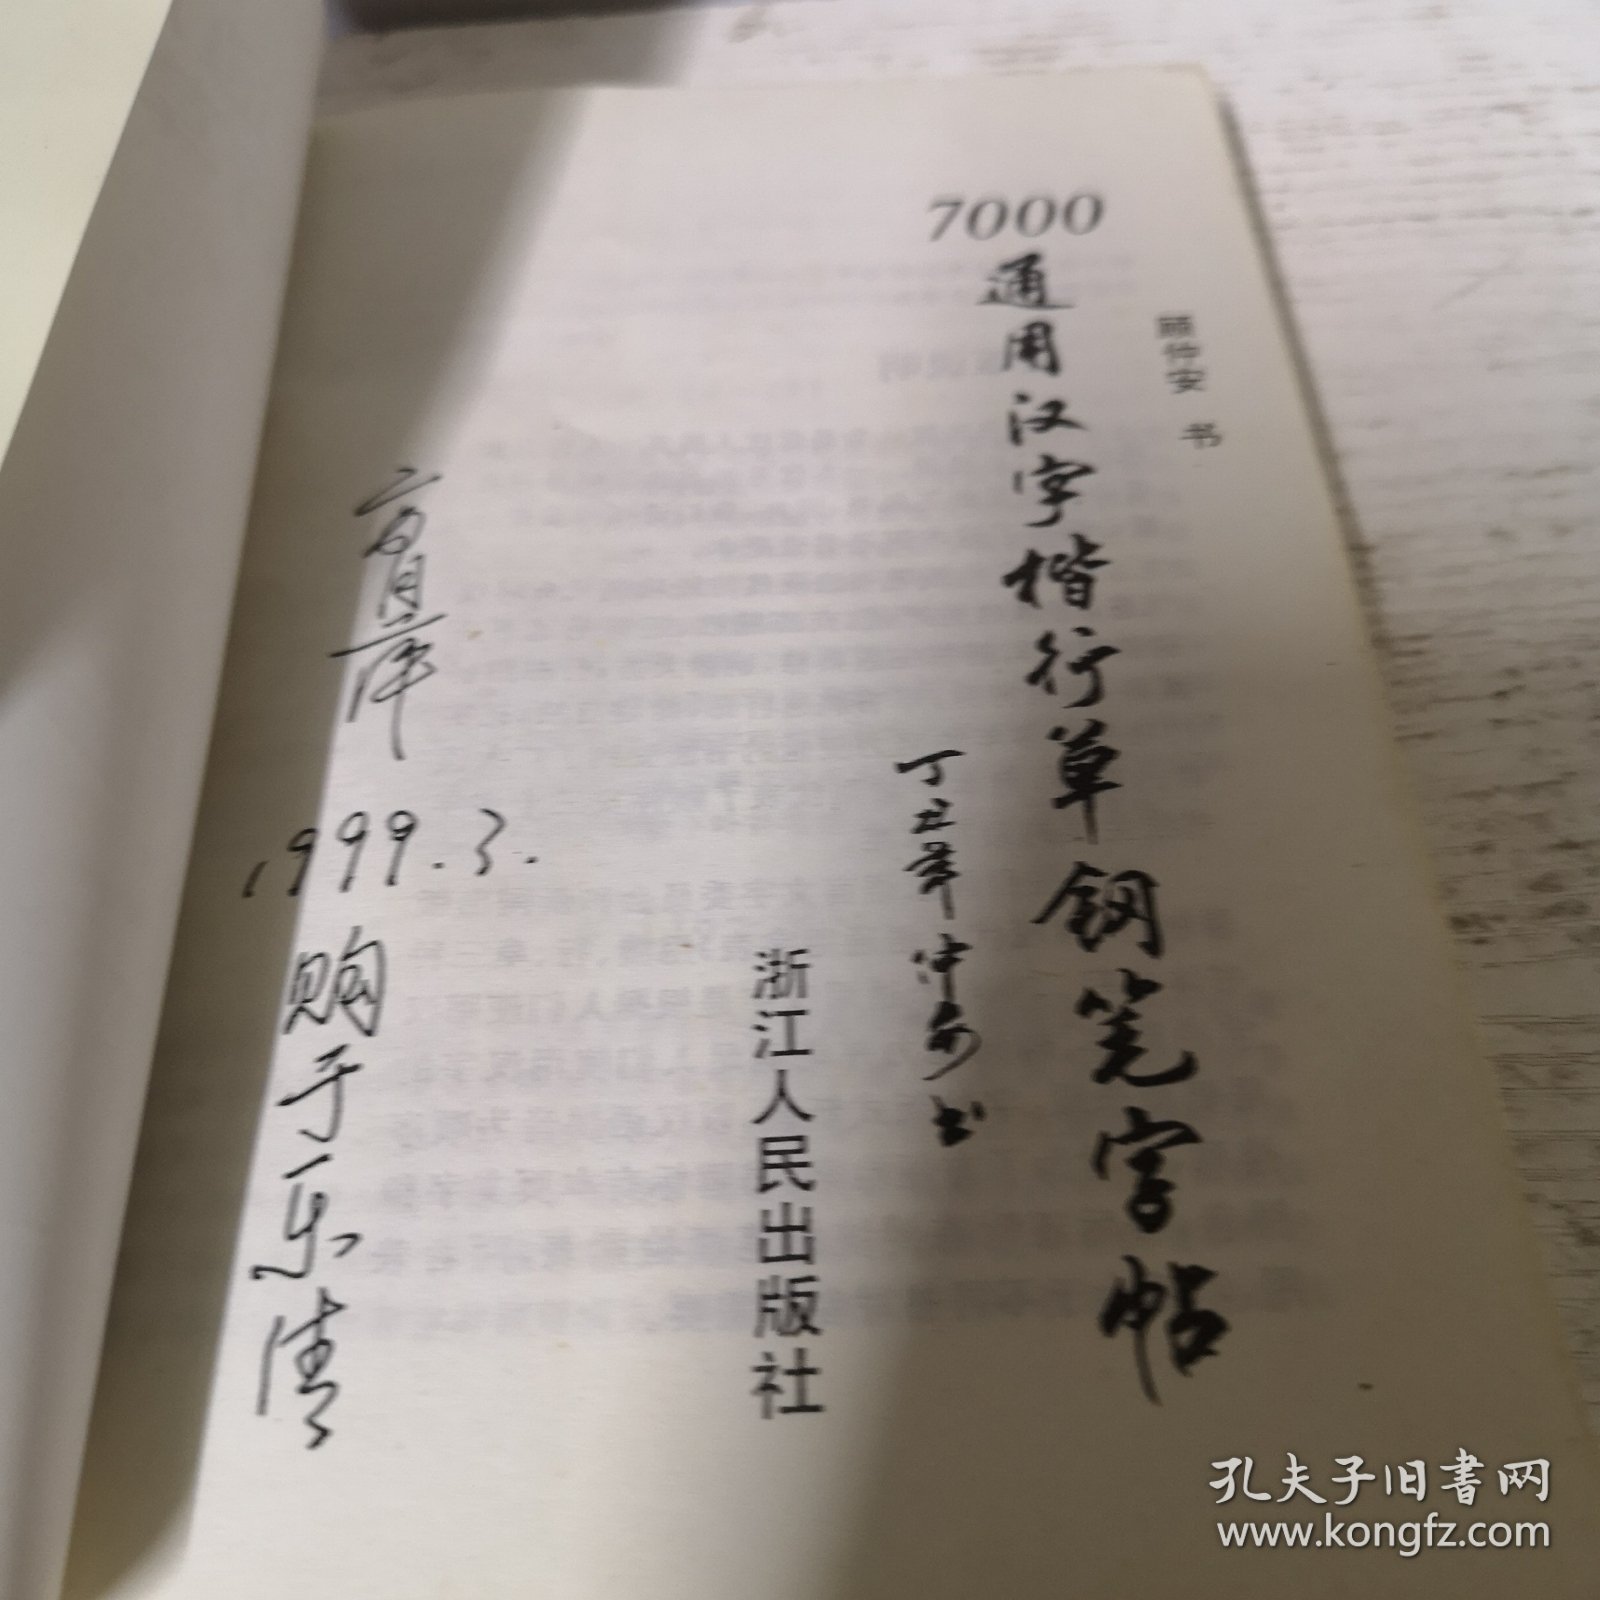 顾仲安 书
7000
通用汉字楷行草钢笔字帖
丁丑年仲安书
浙江人民出版社
1999.3.
购于乐清
孔夫子旧书网
www.kongfz.com